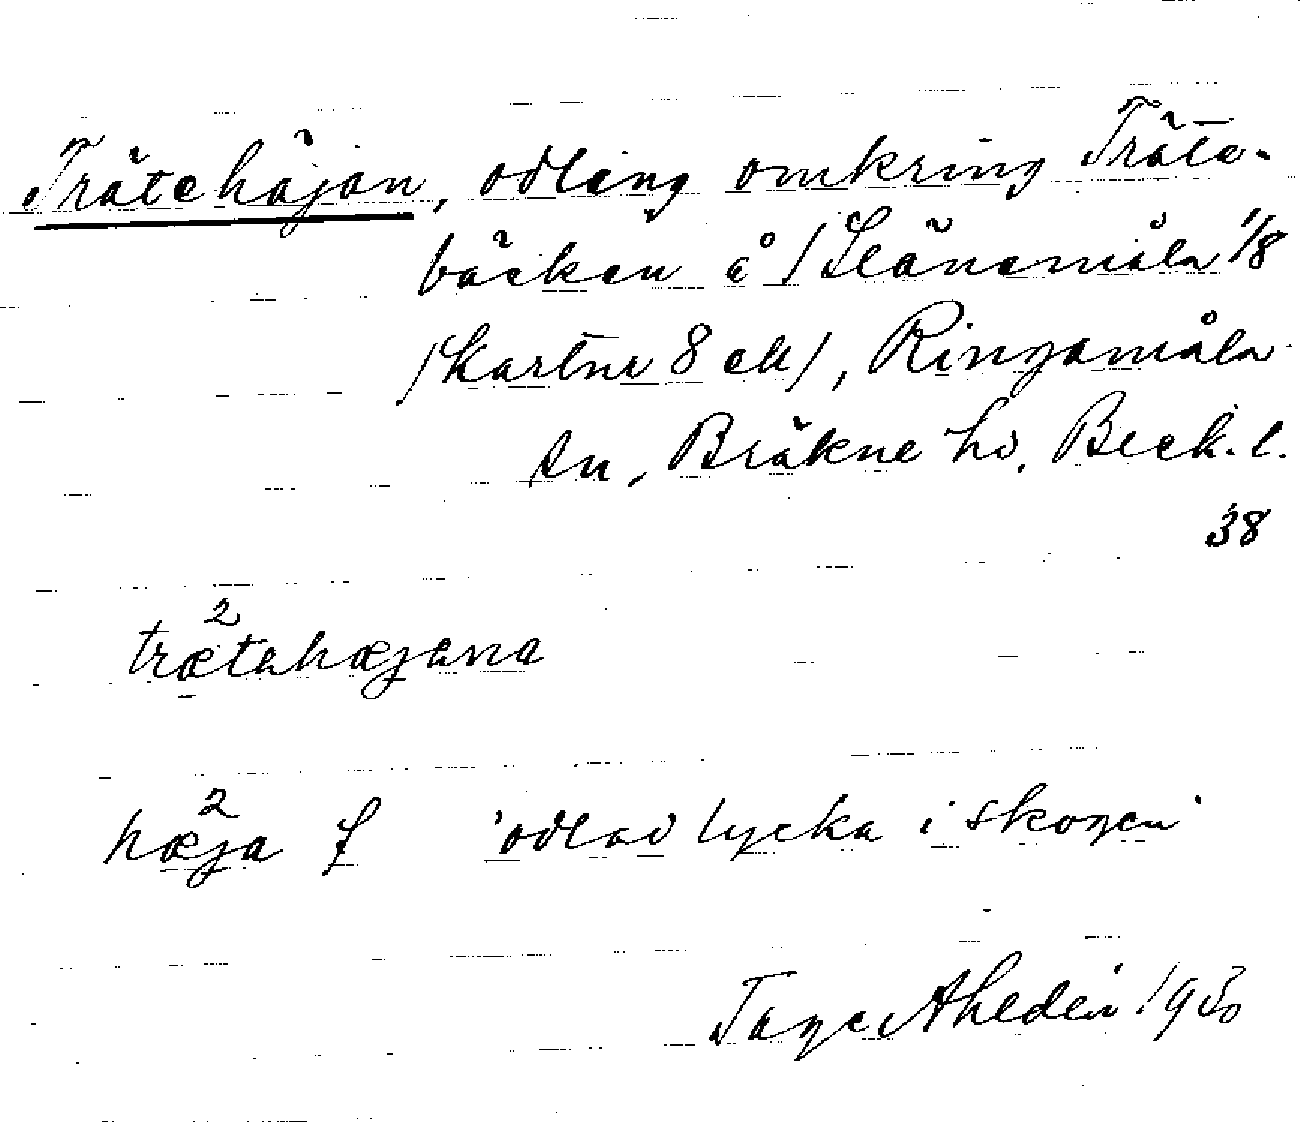 Trätehäjan, odling omkring Träte-
bäcken å /Slänsmåla 1/8
/kartnr 8 ek/, Ringamåla
sn, Bräkne hd, Bleck. l.
38
trætahæjana
hæja f 'odlad lycka i skogen'
Tage Ahldén 1930